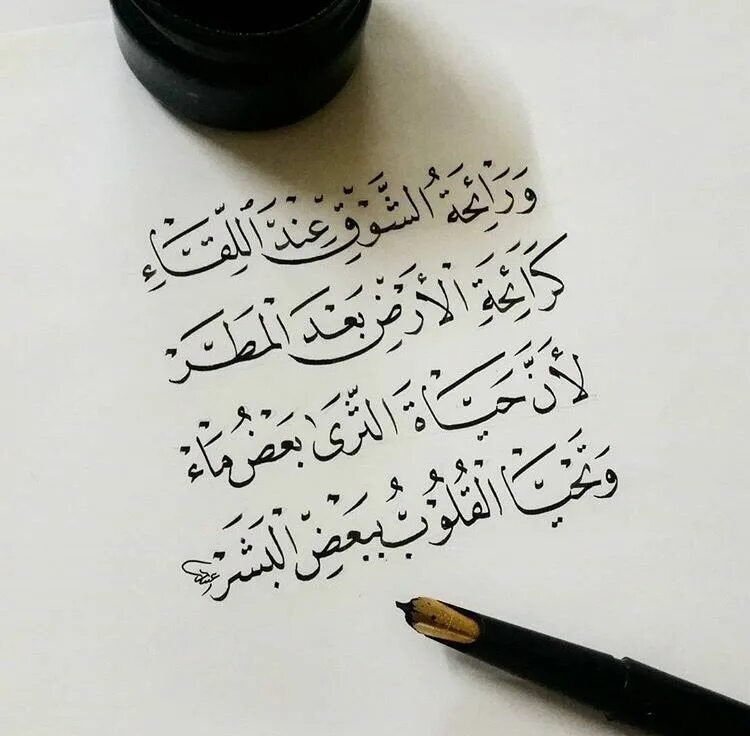 وَرَائِحَةُ الشَّوْقِ عِنْدَ اللِّقَاءِ
كَرَائِحَةِ الْأَرْضِ بَعْدَ الْمَطَرْ
لأَنَّ حَيَاةَ الثَّرَى بَعْضُ مَاءْ
وَتَحْيَا الْقُلُوبُ بِبَعْضِ الْبَشَرْ